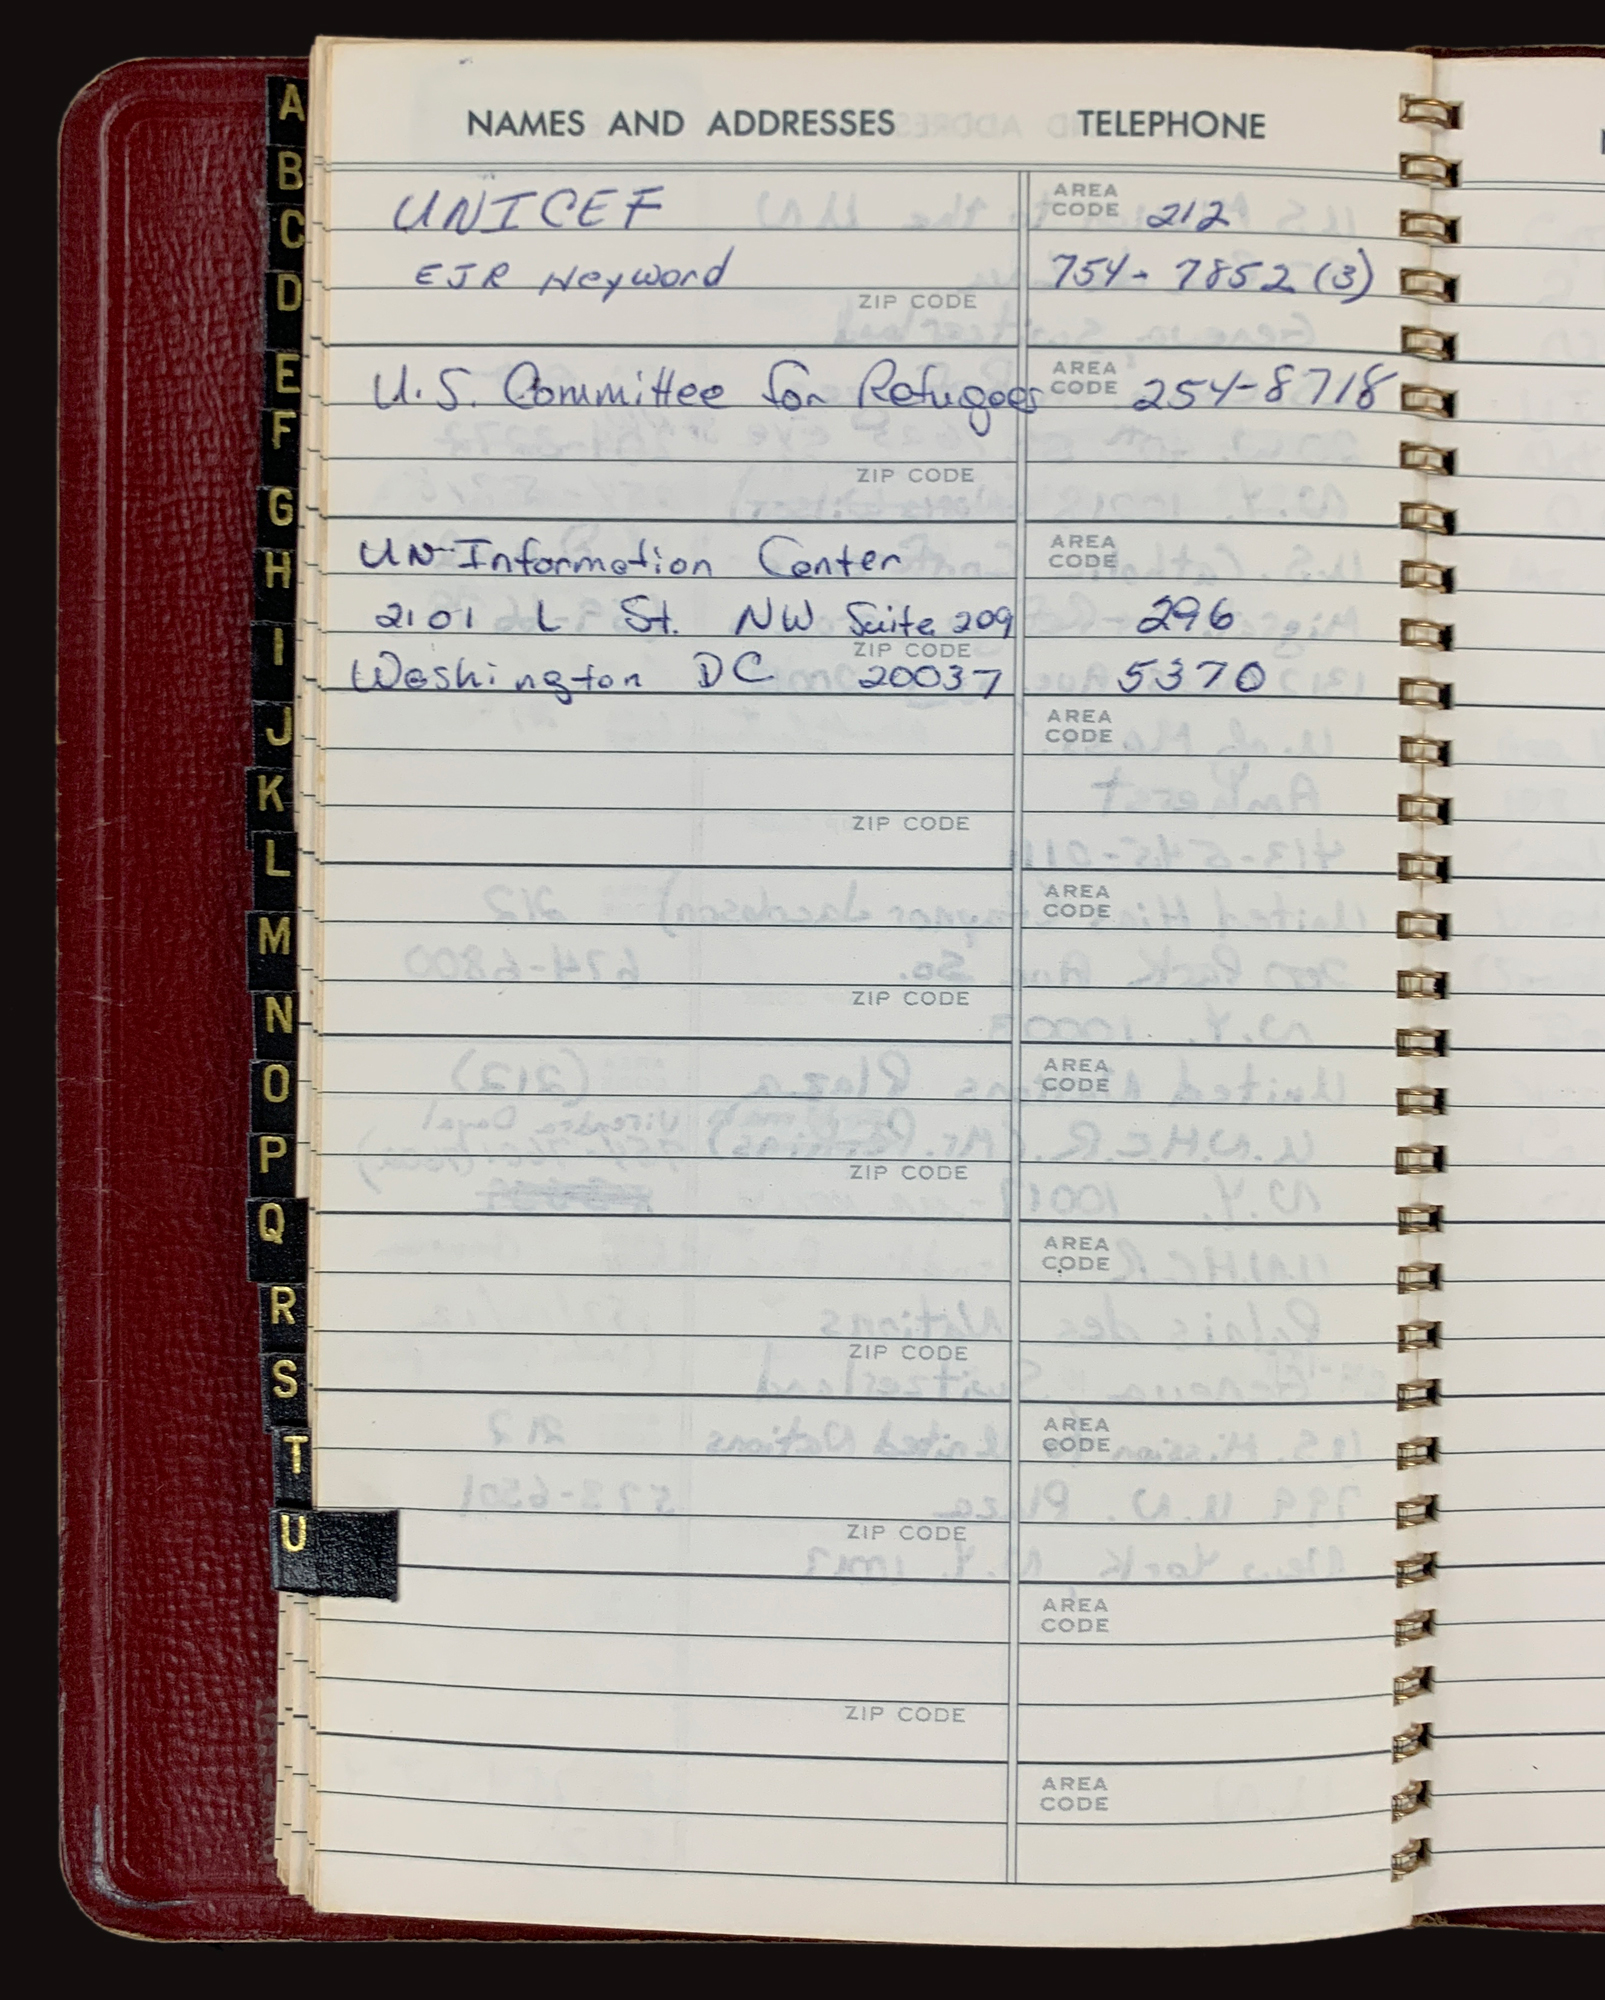 NAMES AND ADDRESSES TELEPHONE
UNICEF AREA CODE 212
EJR Heyword 754-7852 (3)
ZIP CODE
U.S. Committee for Refugees AREA CODE 254-8718
ZIP CODE
UN Information Center AREA CODE
2101 L St. NW Suite 209 296
ZIP CODE
Washington DC 20037 5370
AREA CODE
ZIP CODE
AREA CODE
ZIP CODE
AREA CODE
ZIP CODE
AREA CODE
ZIP CODE
AREA CODE
ZIP CODE
AREA CODE
ZIP CODE
AREA CODE
A
B
C
D
E
F
G
H
I
J
K
L
M
N
O
P
Q
R
S
T
U